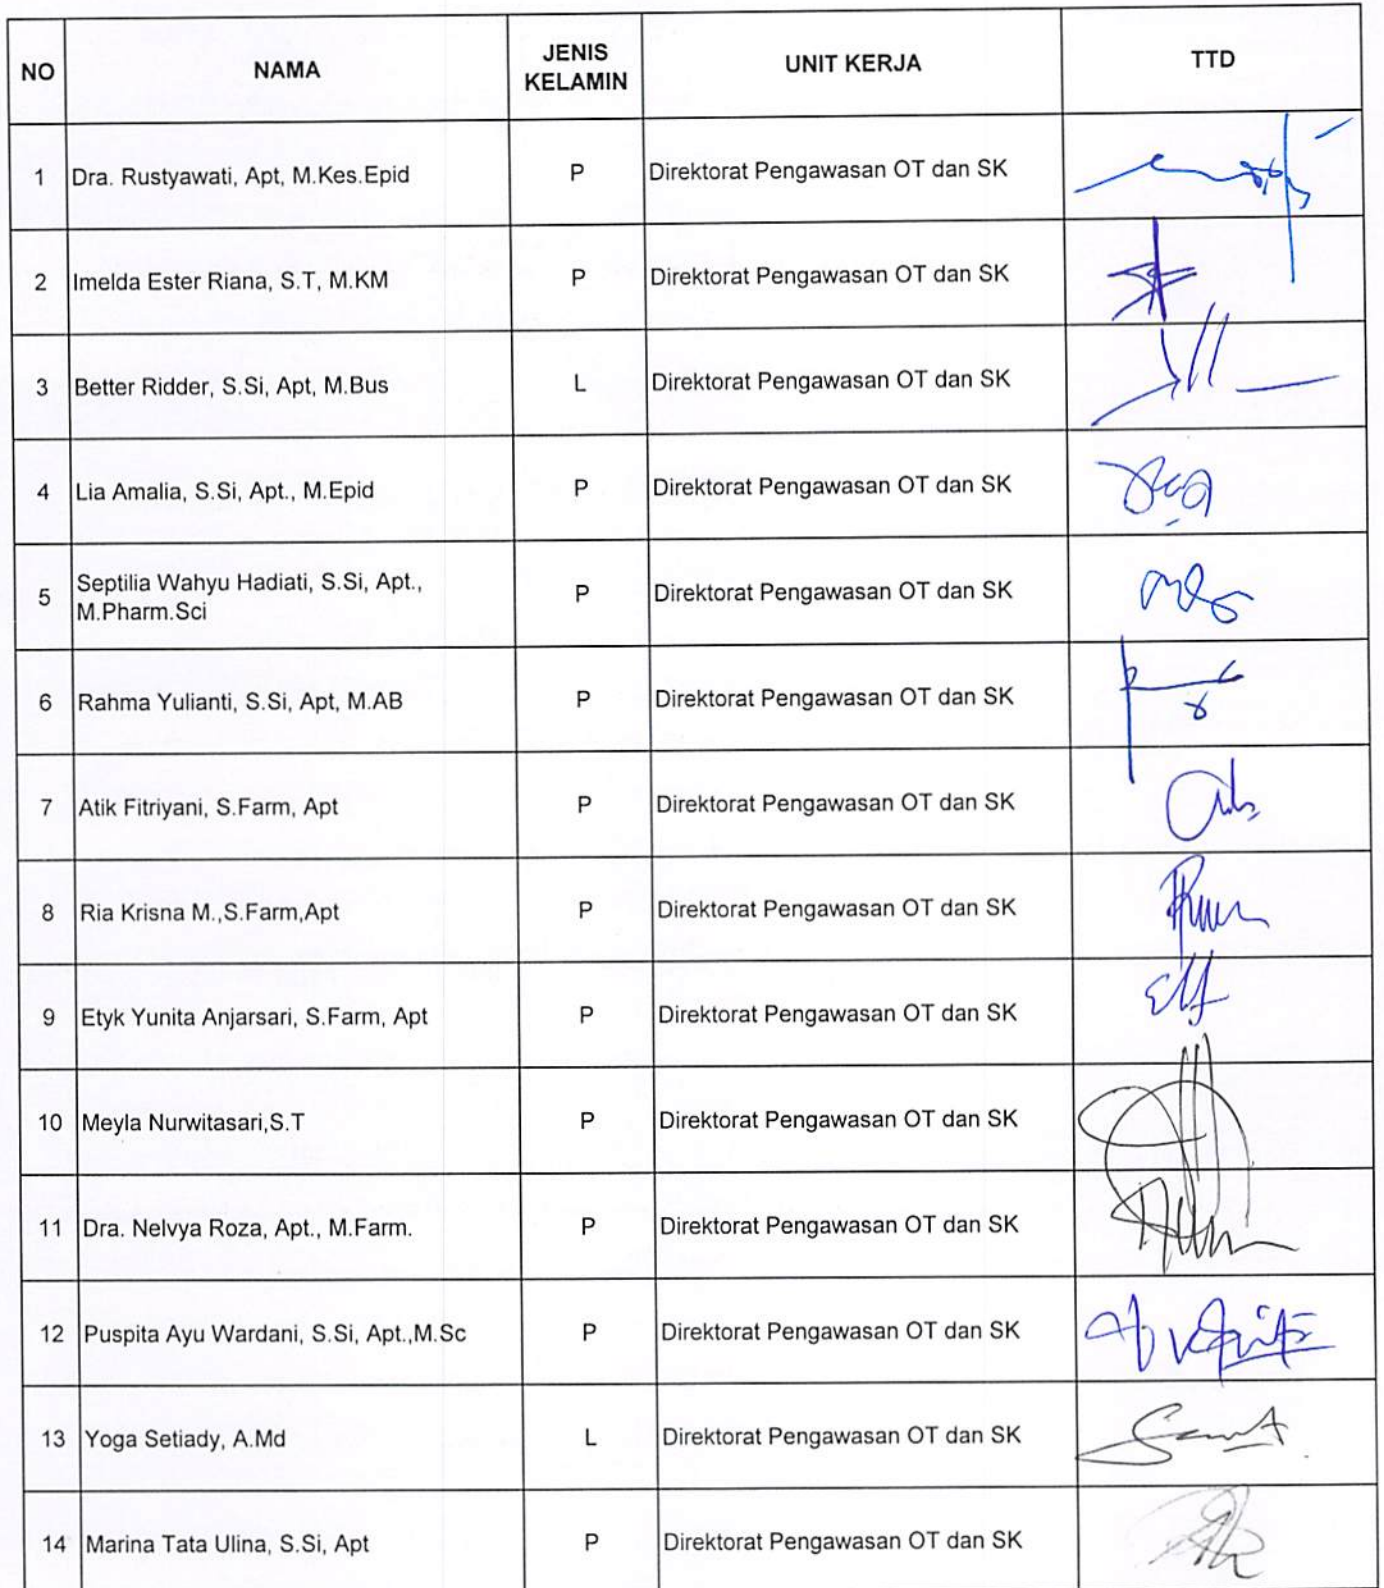 NO NAMA JENIS KELAMIN UNIT KERJA TTD
1 Dra. Rustyawati, Apt, M.Kes.Epid P Direktorat Pengawasan OT dan SK
2 Imelda Ester Riana, S.T, M.KM P Direktorat Pengawasan OT dan SK
3 Better Ridder, S.Si, Apt, M.Bus L Direktorat Pengawasan OT dan SK
4 Lia Amalia, S.Si, Apt., M.Epid P Direktorat Pengawasan OT dan SK
5 Septilia Wahyu Hadiati, S.Si, Apt., M.Pharm.Sci P Direktorat Pengawasan OT dan SK
6 Rahma Yulianti, S.Si, Apt, M.AB P Direktorat Pengawasan OT dan SK
7 Atik Fitriyani, S.Farm, Apt P Direktorat Pengawasan OT dan SK
8 Ria Krisna M.,S.Farm,Apt P Direktorat Pengawasan OT dan SK
9 Etyk Yunita Anjarsari, S.Farm, Apt P Direktorat Pengawasan OT dan SK
10 Meyla Nurwitasari,S.T P Direktorat Pengawasan OT dan SK
11 Dra. Nelvya Roza, Apt., M.Farm. P Direktorat Pengawasan OT dan SK
12 Puspita Ayu Wardani, S.Si, Apt.,M.Sc P Direktorat Pengawasan OT dan SK
13 Yoga Setiady, A.Md L Direktorat Pengawasan OT dan SK
14 Marina Tata Ulina, S.Si, Apt P Direktorat Pengawasan OT dan SK